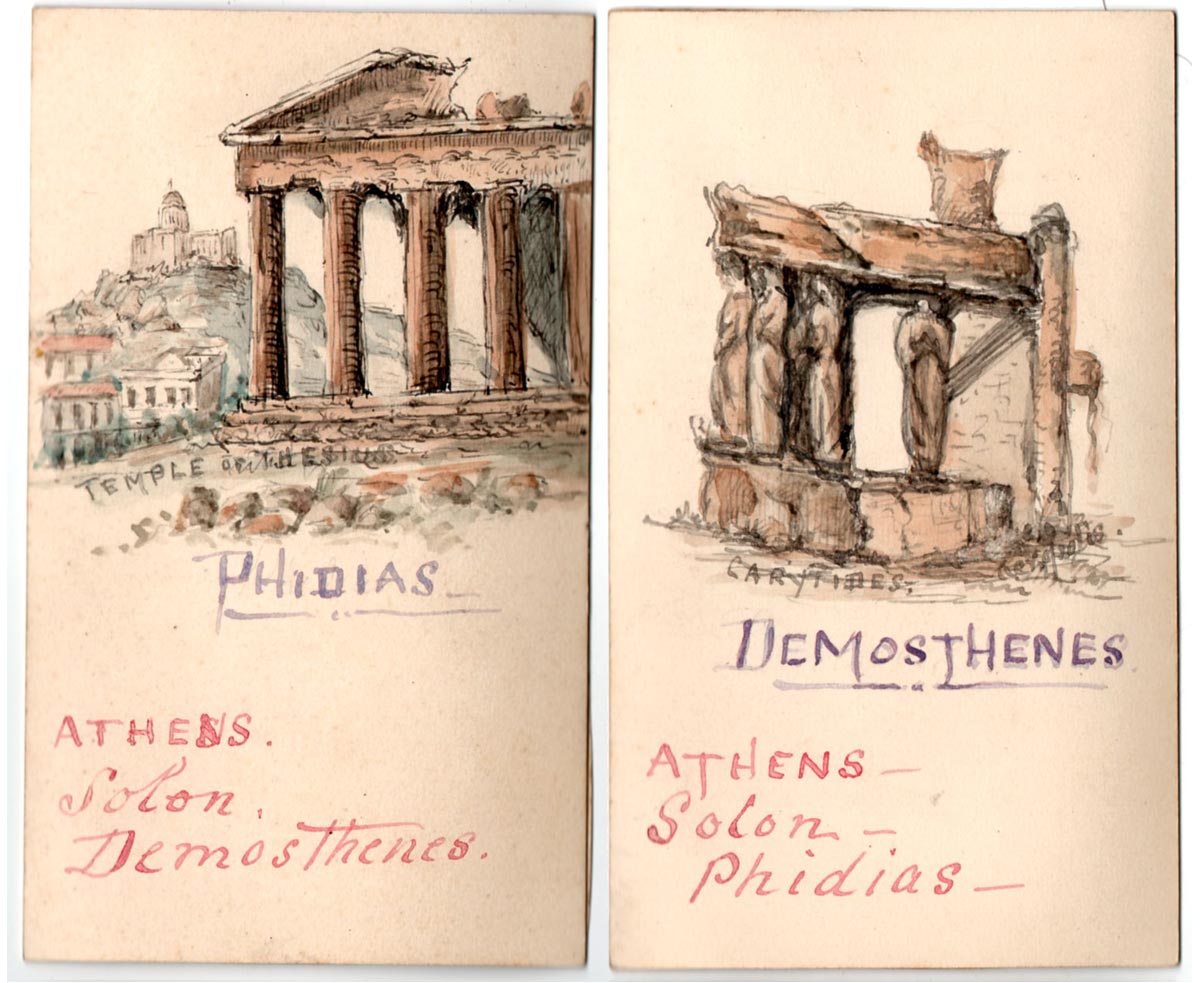 TEMPLE OF THESIUS
PHIDIAS
ATHENS.
Solon.
Demosthenes.
CARYTIDES.
DEMOSTHENES
ATHENS
Solon
Phidias